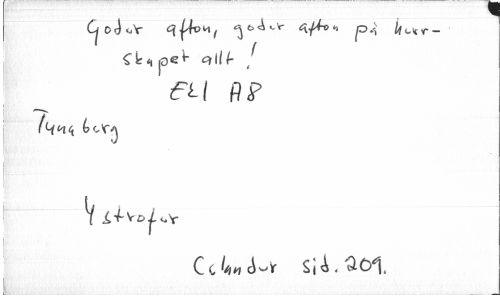 Goder afton, goder afton på herr-
skapet allt!
EEl A8
Tunaberg
4 strofer
Celander sid. 209.